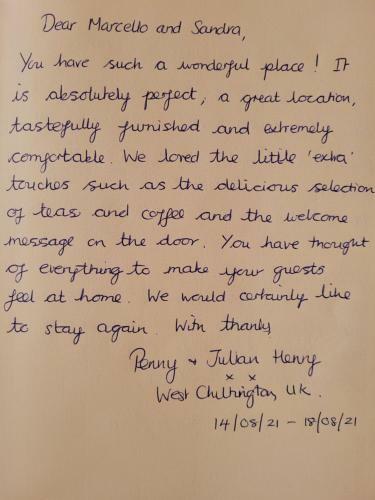 Dear Marcello and Sandra,
You have such a wonderful place! It
is absolutely perfect, a great location,
tastefully furnished and extremely
comfortable. We loved the little 'extra'
touches such as the delicious selection
of teas and coffee and the welcome
message on the door. You have thought
of everything to make your guests
feel at home. We would certainly like
to stay again. With thanks,
Penny + Julian Henny
x x
West Chiltington, UK.
14/08/21 - 18/08/21